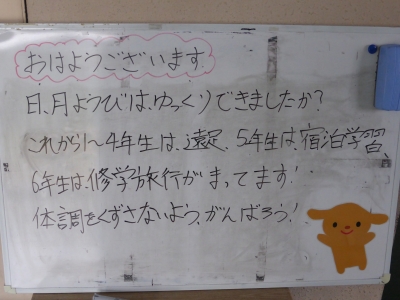 おはようございます
日、月ようびは、ゆっくりできましたか？
これから1〜4年生は、遠足、5年生は、宿泊学習、
6年生は、修学旅行がまってます！
体調をくずさないよう、がんばろう！